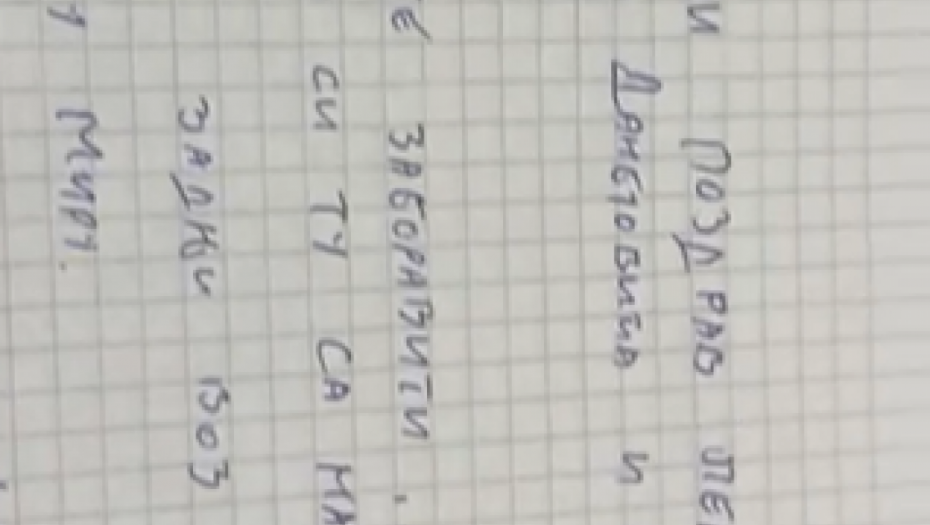 И ПОЗДРАВ ПЕ
ДАНБТОВИТА И
Е ЗАБОРАВИТИ,
СИ ТУ СА МА
ЗАДЊИ ВОЗ
У МИРУ.